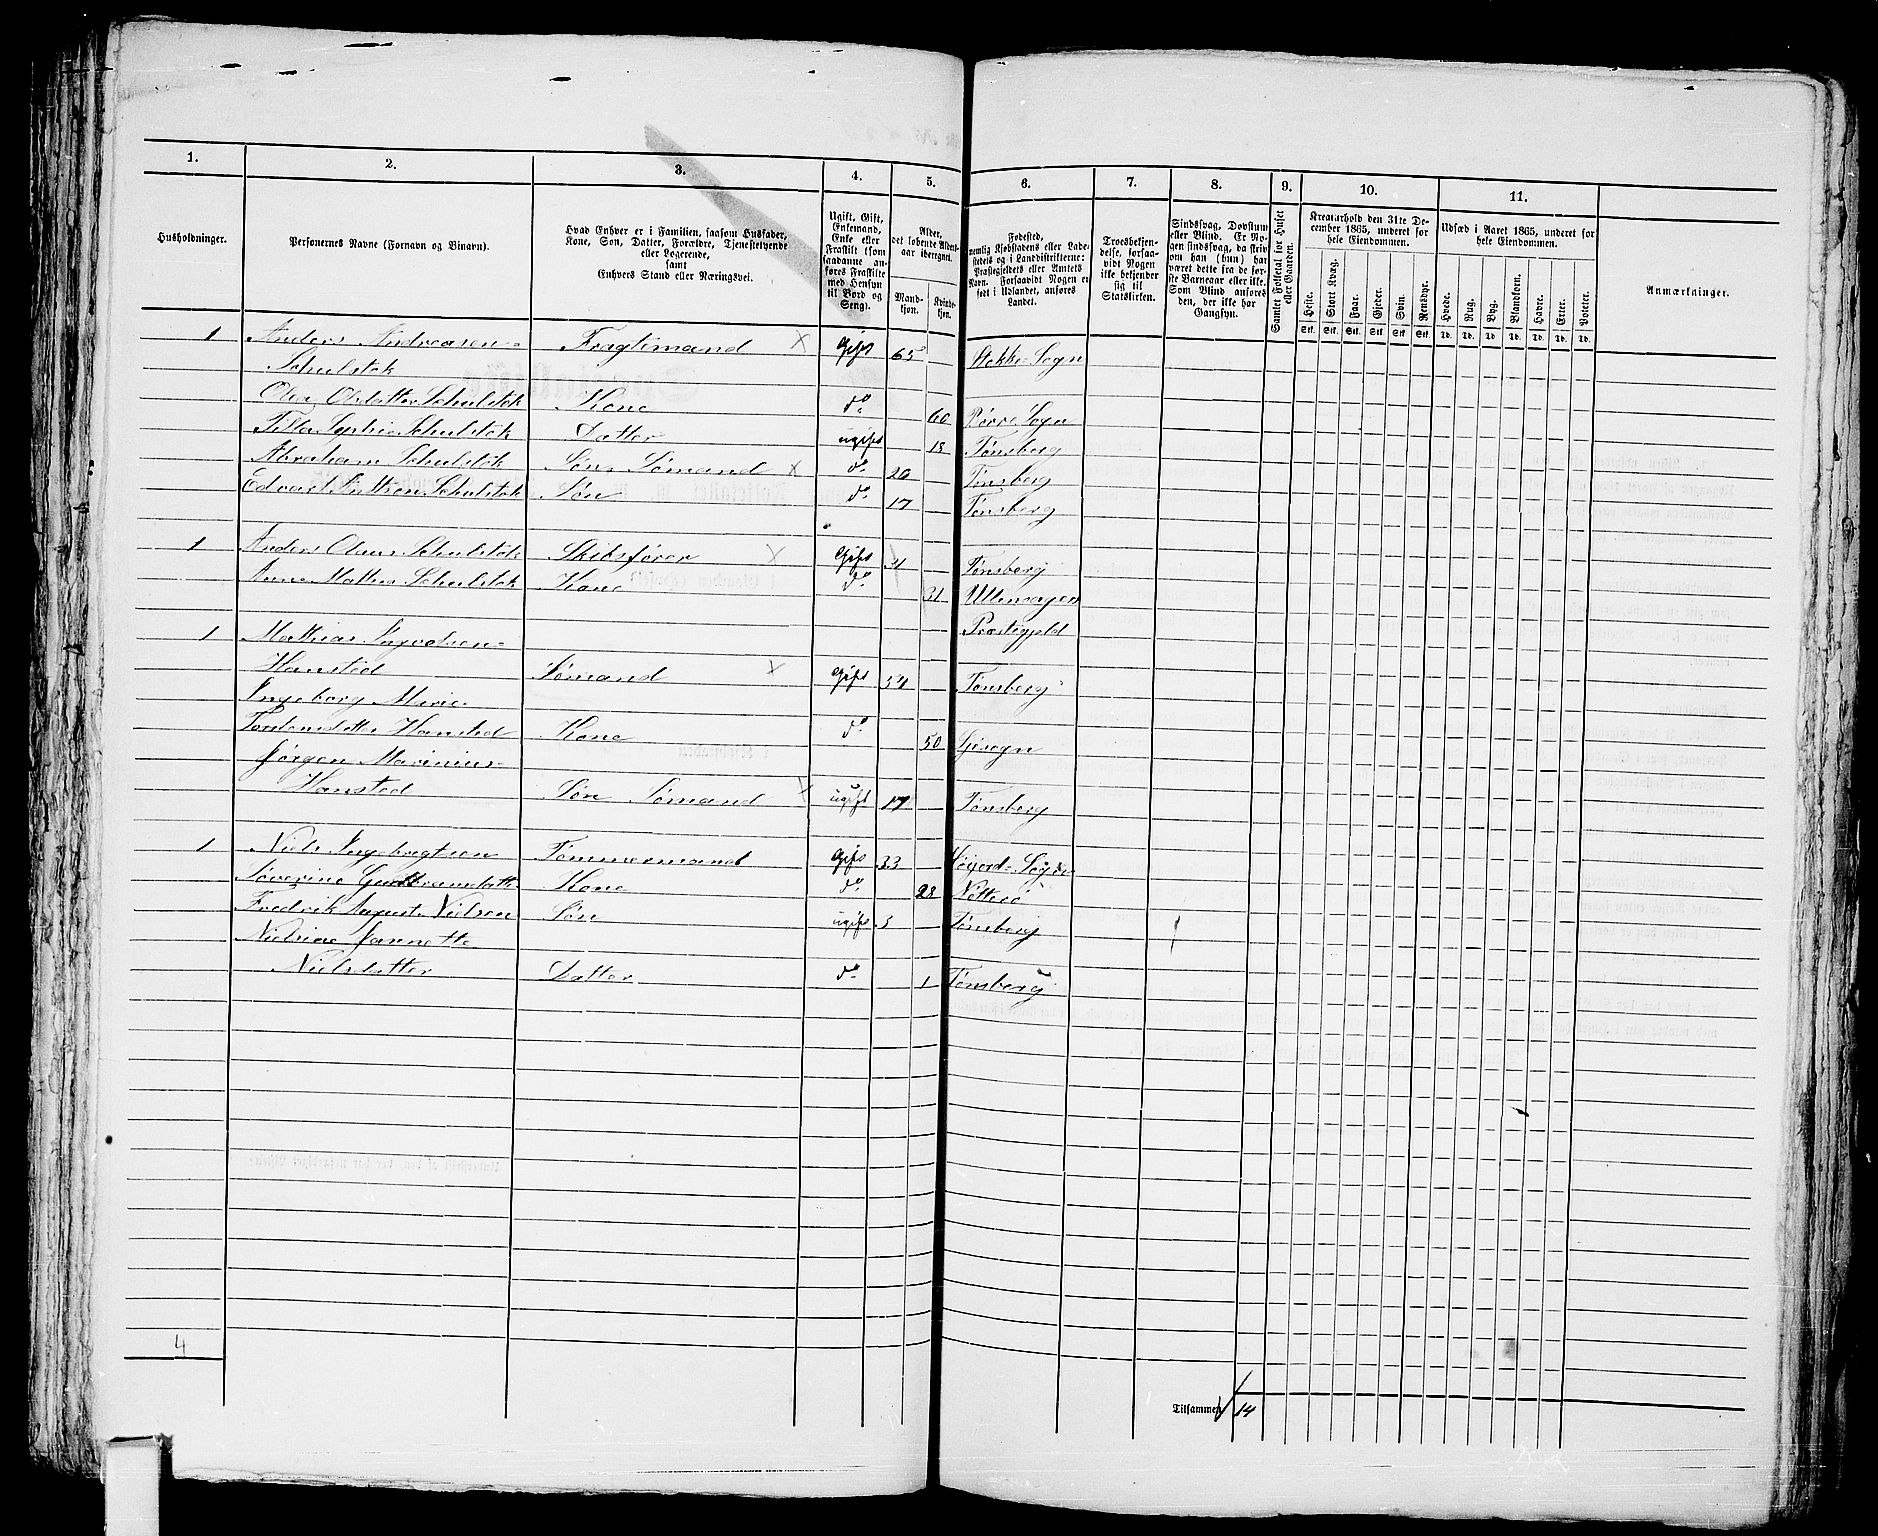 1. 2. 3. 4. 5. 6. 7. 8. 9. 10. 11.
Husholdninger.
Personernes Navne (Fornavn og Tilnavn).
Hvad Enhver er i Familien, saasom Husfader,
Kone, Søn, Datter, Forældre, Tjenestetyende
eller Logerende,
samt
Enhvers Stand eller Næringsvei.
Ugift, Gift,
Enkemand,
Enke eller
Fraskilt (som
saadanne an-
føres Fraskilte
med Hensyn
til Bord og
Seng).
Alder,
det løbende Alders-
aar iberegnet.
Mand-
kjøn.
Kvinde-
kjøn.
Fødested,
nemlig Kjøbstadens eller Lade-
stedets og i Landdistrikterne:
Præstegjeldets eller Amtets
Navn. Forsaavidt Nogen er
født i Udlandet, anføres
Landet.
Troesbekjen-
delse, forsaa-
vidt Nogen
ikke bekjender
sig til
Statskirken.
Sindssvag, Døvstum
eller Blind. Er No-
gen sindssvag, da skri-
ves om han (hun) har
været dette fra de før-
ste Barneaar eller ikke.
Som Blind anføres
den, der ikke har
Gangsyn.
Samlet Folketal for Huset
eller Gaarden.
Kreaturhold den 31te De-
cember 1865, underet for
hele Eiendommen.
Heste. Stort Kvæg. Faar. Gjeder. Svin. Rensdyr.
Stk. Stk. Stk. Stk. Stk. Stk.
Udsæd i Aaret 1865, underet for
hele Eiendommen.
Hvede. Rug. Byg. Blandkorn. Havre. Erter. Poteter.
Td. Td. Td. Td. Td. Td. Td.
Anmærkninger.
1 Anders Andreasen- Fragtemand x Gift 65 Stokke Sogn
Schulstok
Olea Olsdatter Schulstok Kone do 60 Borre Sogn
Schulstok Datter ugift 18 Tønsberg
Abraham Schulstok Søn Sømand x do 20 Tønsberg
Edvart Schulstok Søn do 17 Tønsberg
1 Anders Olaus Schulstok Skibsfører x Gift Tønsberg
Anne Mathea Schulstok Kone do 31
Præstegjeld
1 Mathias
Hansted Sømand x Gift 54 Tønsberg
Ingeborg Marie
Hansted Kone do 50
Jørgen Marinius-
Hansted Søn Sømand x ugift 17 Tønsberg
1 Niels Ingebregtsen Tømmermand Gift 33
Søverine Kone do 28 Nøtterø
Fredrik August Nielsen Søn ugift 3 Tønsberg
Nielsine Jannette
Nielsdatter Datter do 1 Tønsberg
4
Tilsammen 14